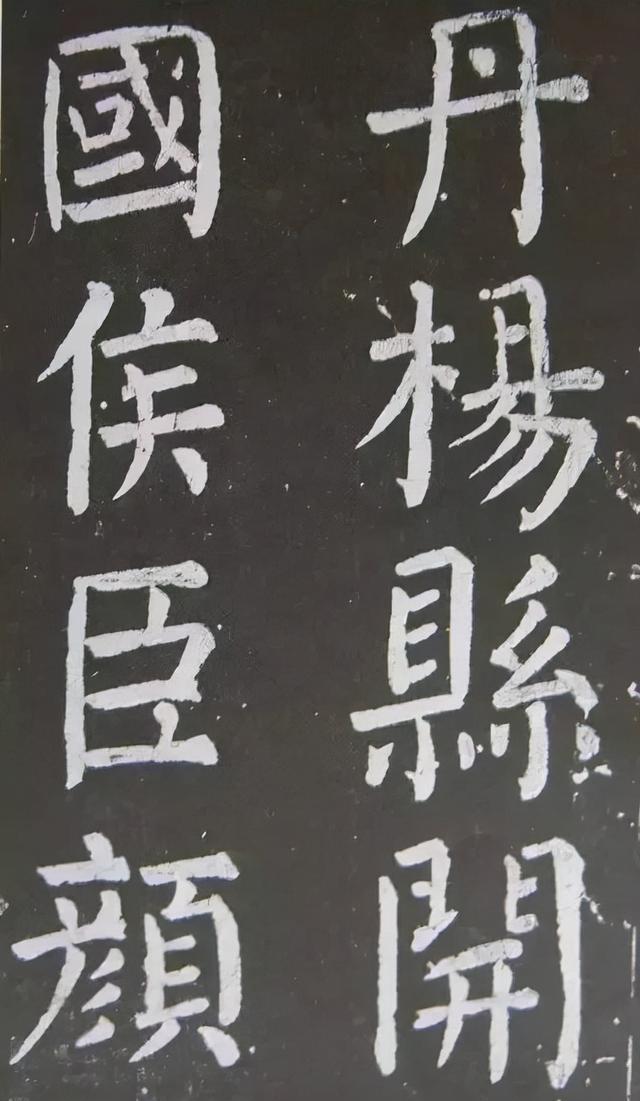 丹楊縣開
國侯臣顔